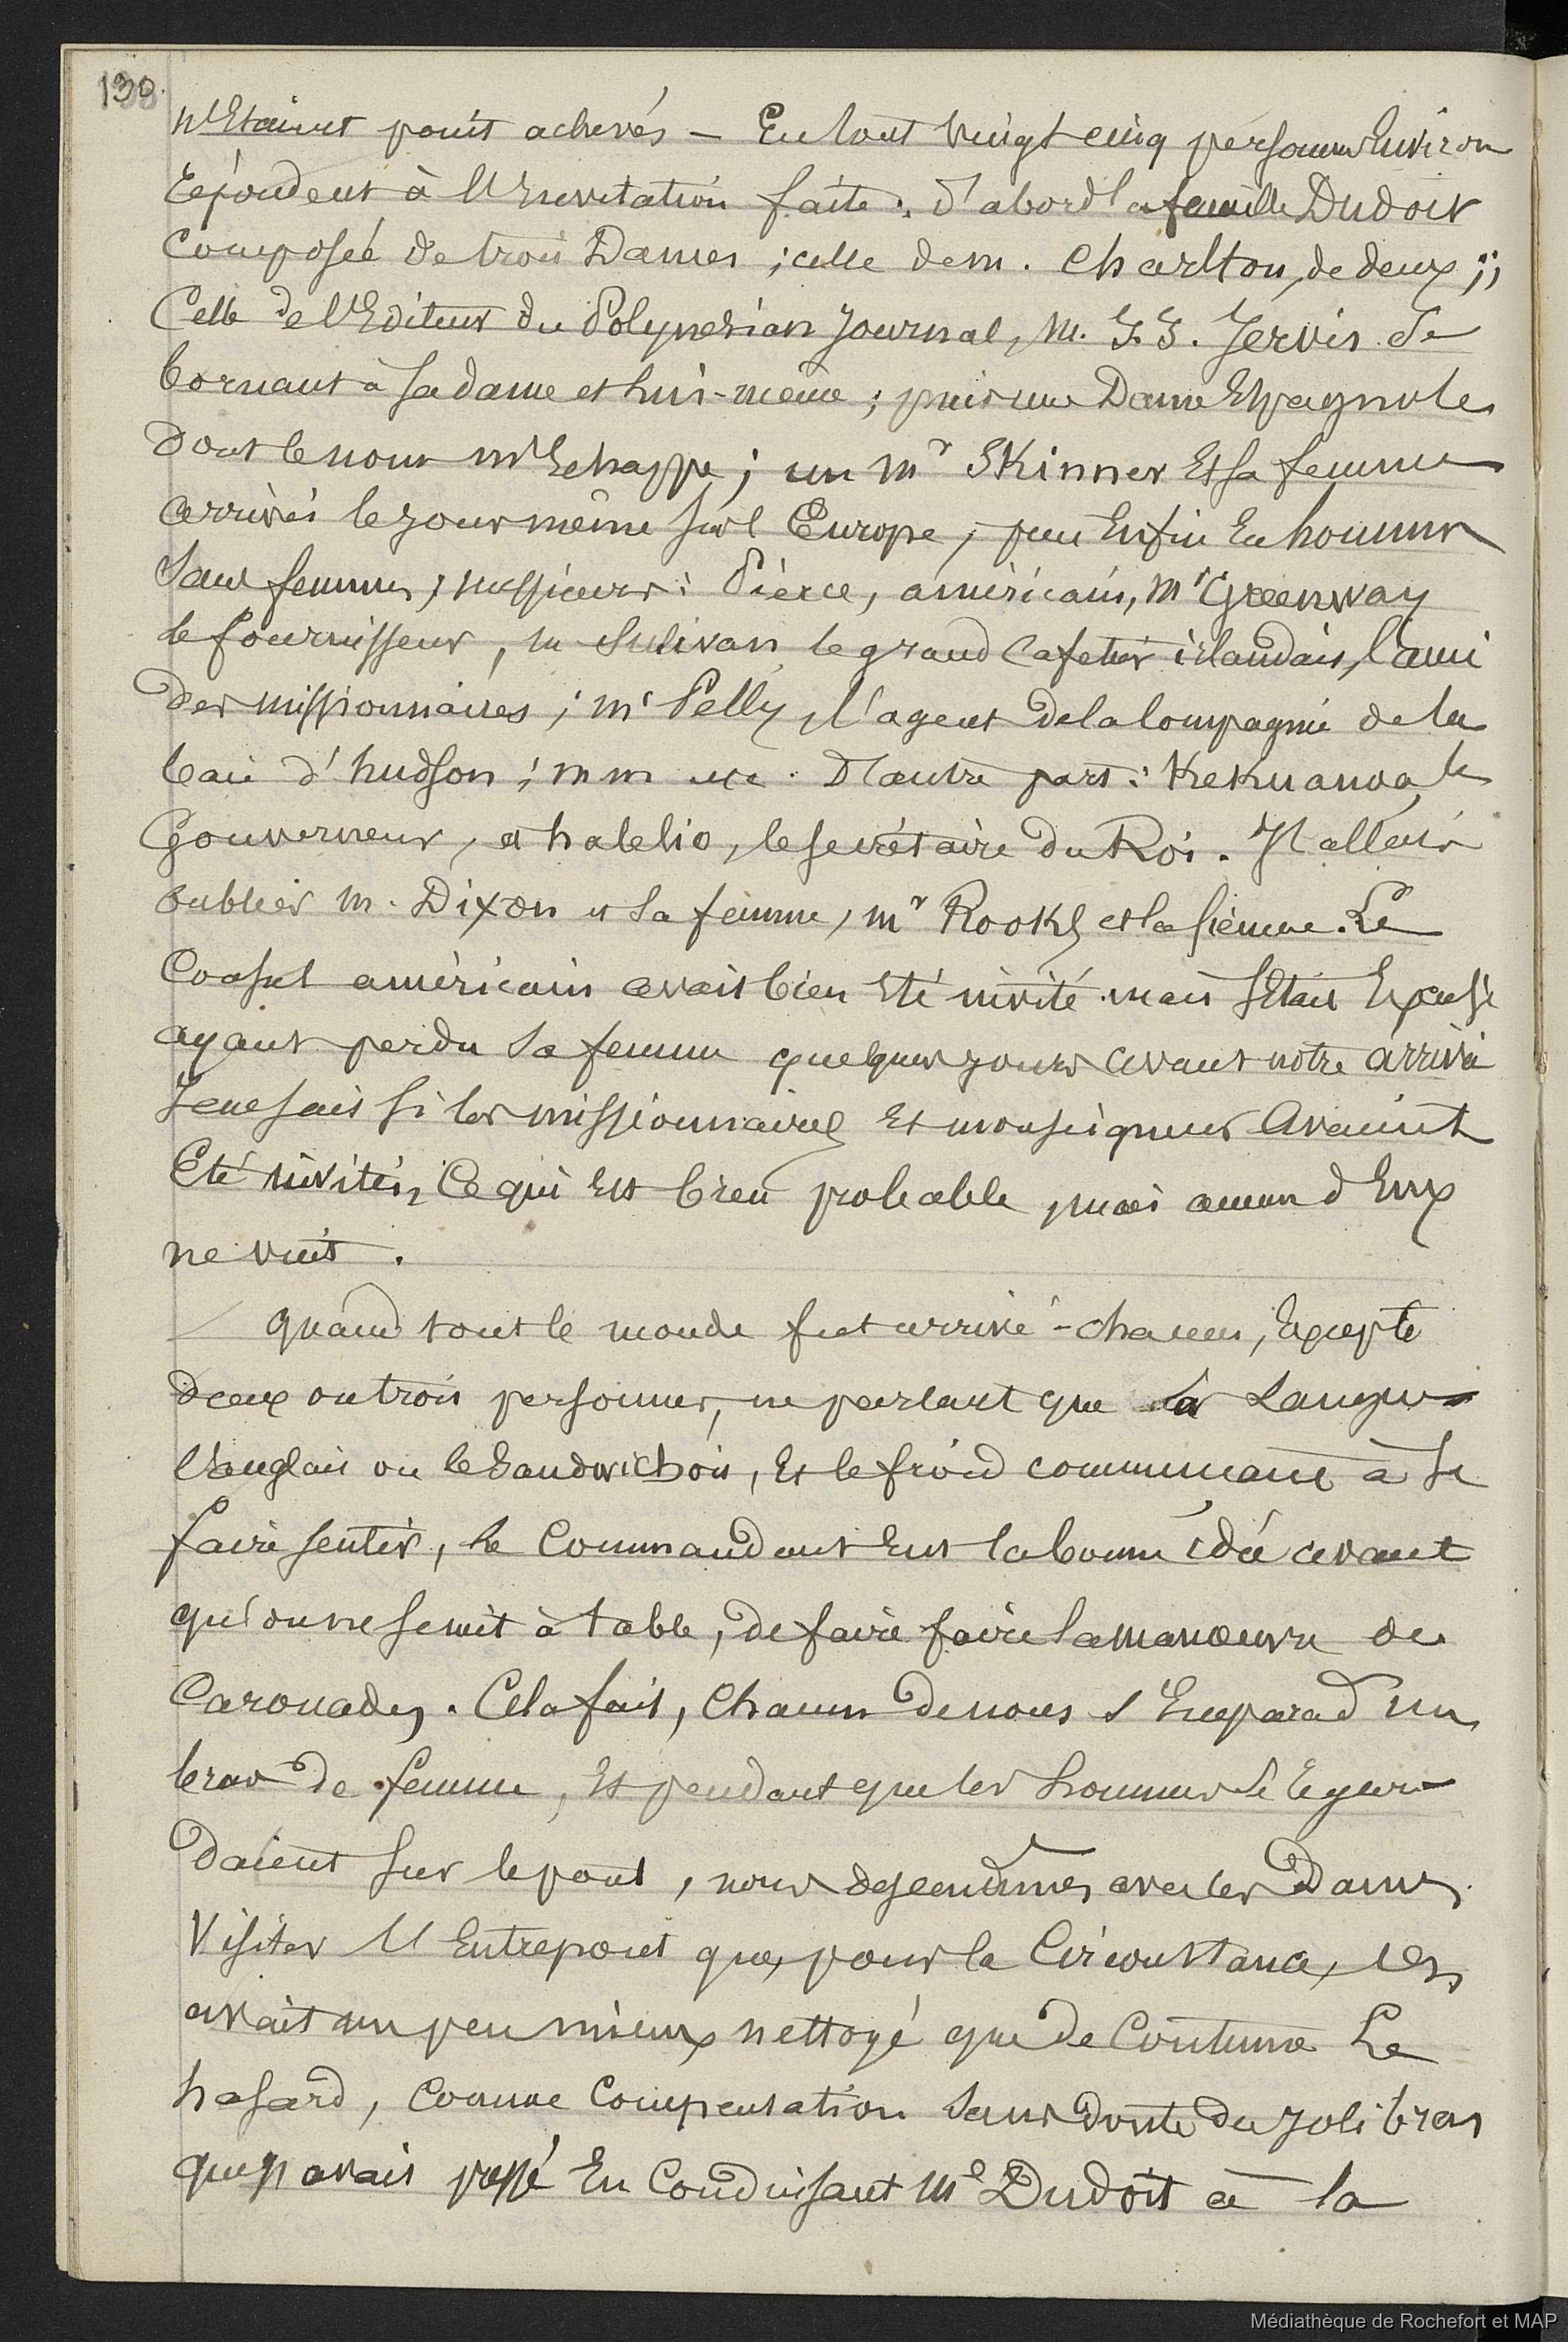 130.
n'Etaient point achevés — En tout vingt cinq personnes Environ
répondent à l'Invitation faite : d'abord la famille Dudoit
composée de trois Dames ; celle de m. Charlton, de deux ;
Celle de l'Editeur du Polynesian Journal, M. J.J. Jervis se
bornant à sa dame et lui-même ; puis une Dame Espagnole
dont le nom m'Echappe ; un Mr Skinner Et sa femme
arrivés le jour même sur l'Europe ; puis Enfin En hommes
sans femmes ; messieurs : Pièrce, américain, Mr Greenway
le fournisseur, m Sulivan le grand cafetier irlandais, l'ami
des missionnaires ; Mr Pelly, l'agent de la Compagnie de la
baie d'hudson ; mm etc. D'autre part : Kekuanoa, le
Gouverneur, et halelio, le secrétaire du Roi. J'allais
oublier m. Dixon et sa femme, Mr Rooks et la sienne. Le
Consul américain avait bien Eté invité mais s'Etait Excusé
ayant perdu sa femme quelques jours avant notre arrivée
Je ne sais si les missionnaires Et monseigneur Avaient
Eté invités, Ce qui Est bien probable, mais aucun d'Eux
ne vint.
Quand tout le monde fut arrivé - chacun, Excepté
deux ou trois personnes, ne parlant que sa Langue
l'anglais ou le Sandwichois, Et le froid commençant à se
faire sentir, le Commandant Eut la bonne idée avant
qu'on ne se mit à table, de faire faire la manœuvre des
Caronades. Cela fait, Chacun de nous s'Empara d'un
bras de femme, Et pendant que les hommes se regar-
daient sur le pont, nous descendimes avec les Dames
Visiter l'Entrepont que, pour la Circonstance, l'on
avait un peu mieux nettoyé que de Coutume Le
hasard, Comme Compensation sans doute du joli bras
que j'avais pressé En Conduisant Me Dudoit à la
Médiathèque de Rochefort et MAP